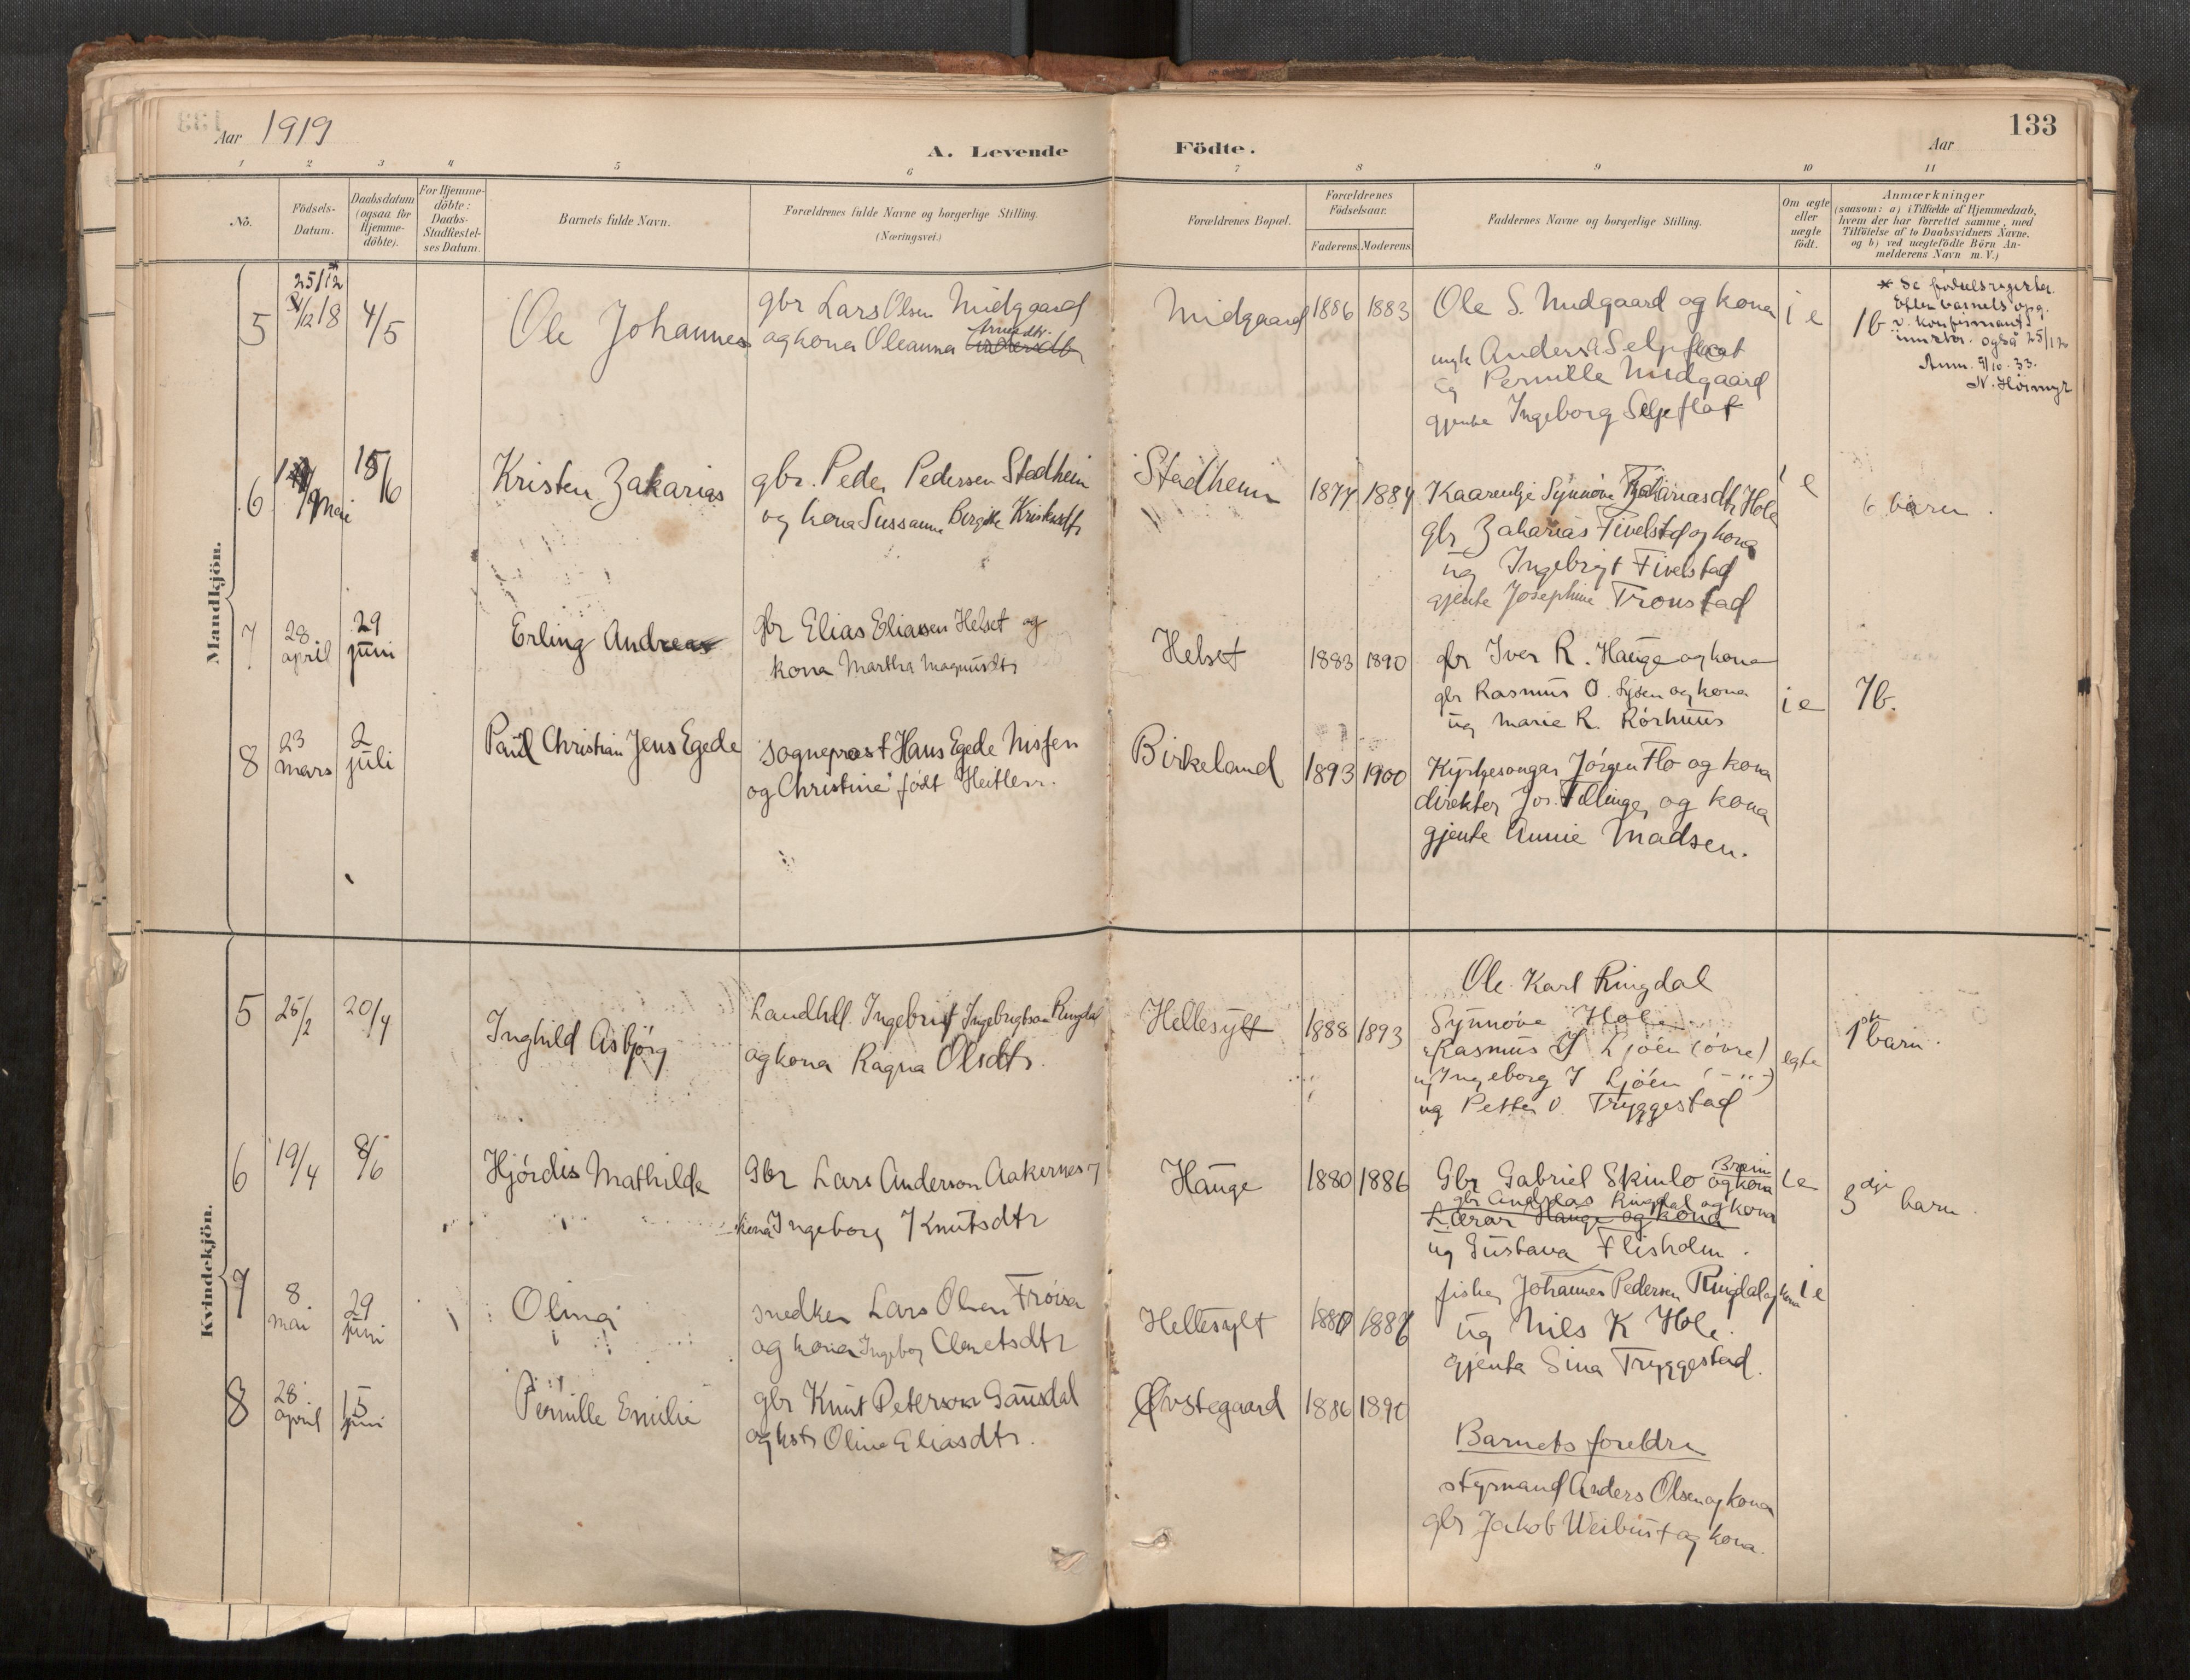 133
Aar 1919
A. Levende Födte.
Aar
1 2 3 4 5 6 7 8 9 10 11
No.
Födsels-
Datum.
Daabsdatum
(ogsaa for
Hjemme-
döbte).
For Hjemme-
döbte:
Daabs-
Stadfæstel-
ses Datum.
Barnets fulde Navn.
Forældrenes fulde Navne og borgerlige Stilling.
(Næringsvei.)
Forældrenes Bopæl.
Forældrenes
Födselsaar.
Faderens. Moderens.
Faddernes Navne og borgerlige Stilling.
Om ægte
eller
uægte
födt.
Anmærkninger
(saasom: a) i Tilfælde af Hjemmedaab,
hvem der har forrettet samme, med
Tilföielse af to Daabsvidners Navne.
og b) ved uægtefödte Börn An-
melderens Navn m. V.)
Mandkjön.
5
25/12*
/12 18
4/5
Ole Johannes
gbr Lars Olsen Midgaard
og kona Oleanna
Midgaard
1886 1883
Ole S. Midgaard og kona
Anders Seljeflot
ug Pernille Midgaard
gjenta Ingeborg Seljeflot
i e
1 b
* Se födselsregister.
Efter barnets opg.
v. konfirmant
også 25/12
Anm. 9/10.33.
N. Höimyr
6
Mai
15/6
Kristen Zakarias
gbr. Peder Pedersen Stadheim
og kona Sussanna Birgitte Kristensdtr
Stadheim
1877 1884
Synnöve Zakariasdtr Hole
gbr Zakarias Fivelstad og kona
ug Ingebrigt Fivelstad
gjente Josephine Tronstad
i e
6 barn.
7
28
april
29
juni
Erling Andreas
gbr Elias Eliasen Helset og
kona Martha Magnusdtr
Helset
1883 1890
gbr Iver R. Hauge og kona
gbr Rasmus O. og kona
ug Marie R. Rörhuus
i e
7 b.
8
23
mars
2
juli
Paul Christian Jens Egede
sogneprest Hans Egede Nissen
og Christine födt
Birkeland
1893 1900
Kyrkjesongar Jörgen Flo og kona
direktör Jos. og kona
gjente Annie Madsen.
Kvindekjön.
5
25/2
20/4
Inghild Asbjörg
Landhdl. Ingebrigt Ingebrigtson Ringdal
og kona Ragna Olsdtr.
Hellesylt
1888 1893
Ole Karl Ringdal
Synnöve Hole
Rasmus I Ljöen (övre)
ug Ingeborg I Ljöen (-"-)
ug Petter O. Tryggestad
egte
1ste barn.
6
19/4
8/6
Hjördis Mathilde
Gbr Lars Anderson Aakernes og
kona Ingeborg Knutsdtr
Hauge
1880 1886
Gbr Gabriel Skinlo og kona
gbr Andreas Ringdal og kona
Lærar Hauge og kona
ug Gustava Flisholm.
i e
3dje barn.
7
8
mai
29
juni
Olina
snedker Lars Olsen Fröisa
og kona Ingebor Clemetsdtr
Hellesylt
1880 1886
fisker Johannes Pedersen Ringdal og kona
ug Nils K Hole.
gjenta Sina Tryggestad.
i e
8
28
april
15
juni
Pernille Emilie
gbr Knut Peterson Gausdal
og hstr Oline Eliasdtr.
Øvstegaard
1886 1890
Barnets foreldre
styrmand Anders Olsen og kona
gbr Jakob Weibust og kona.